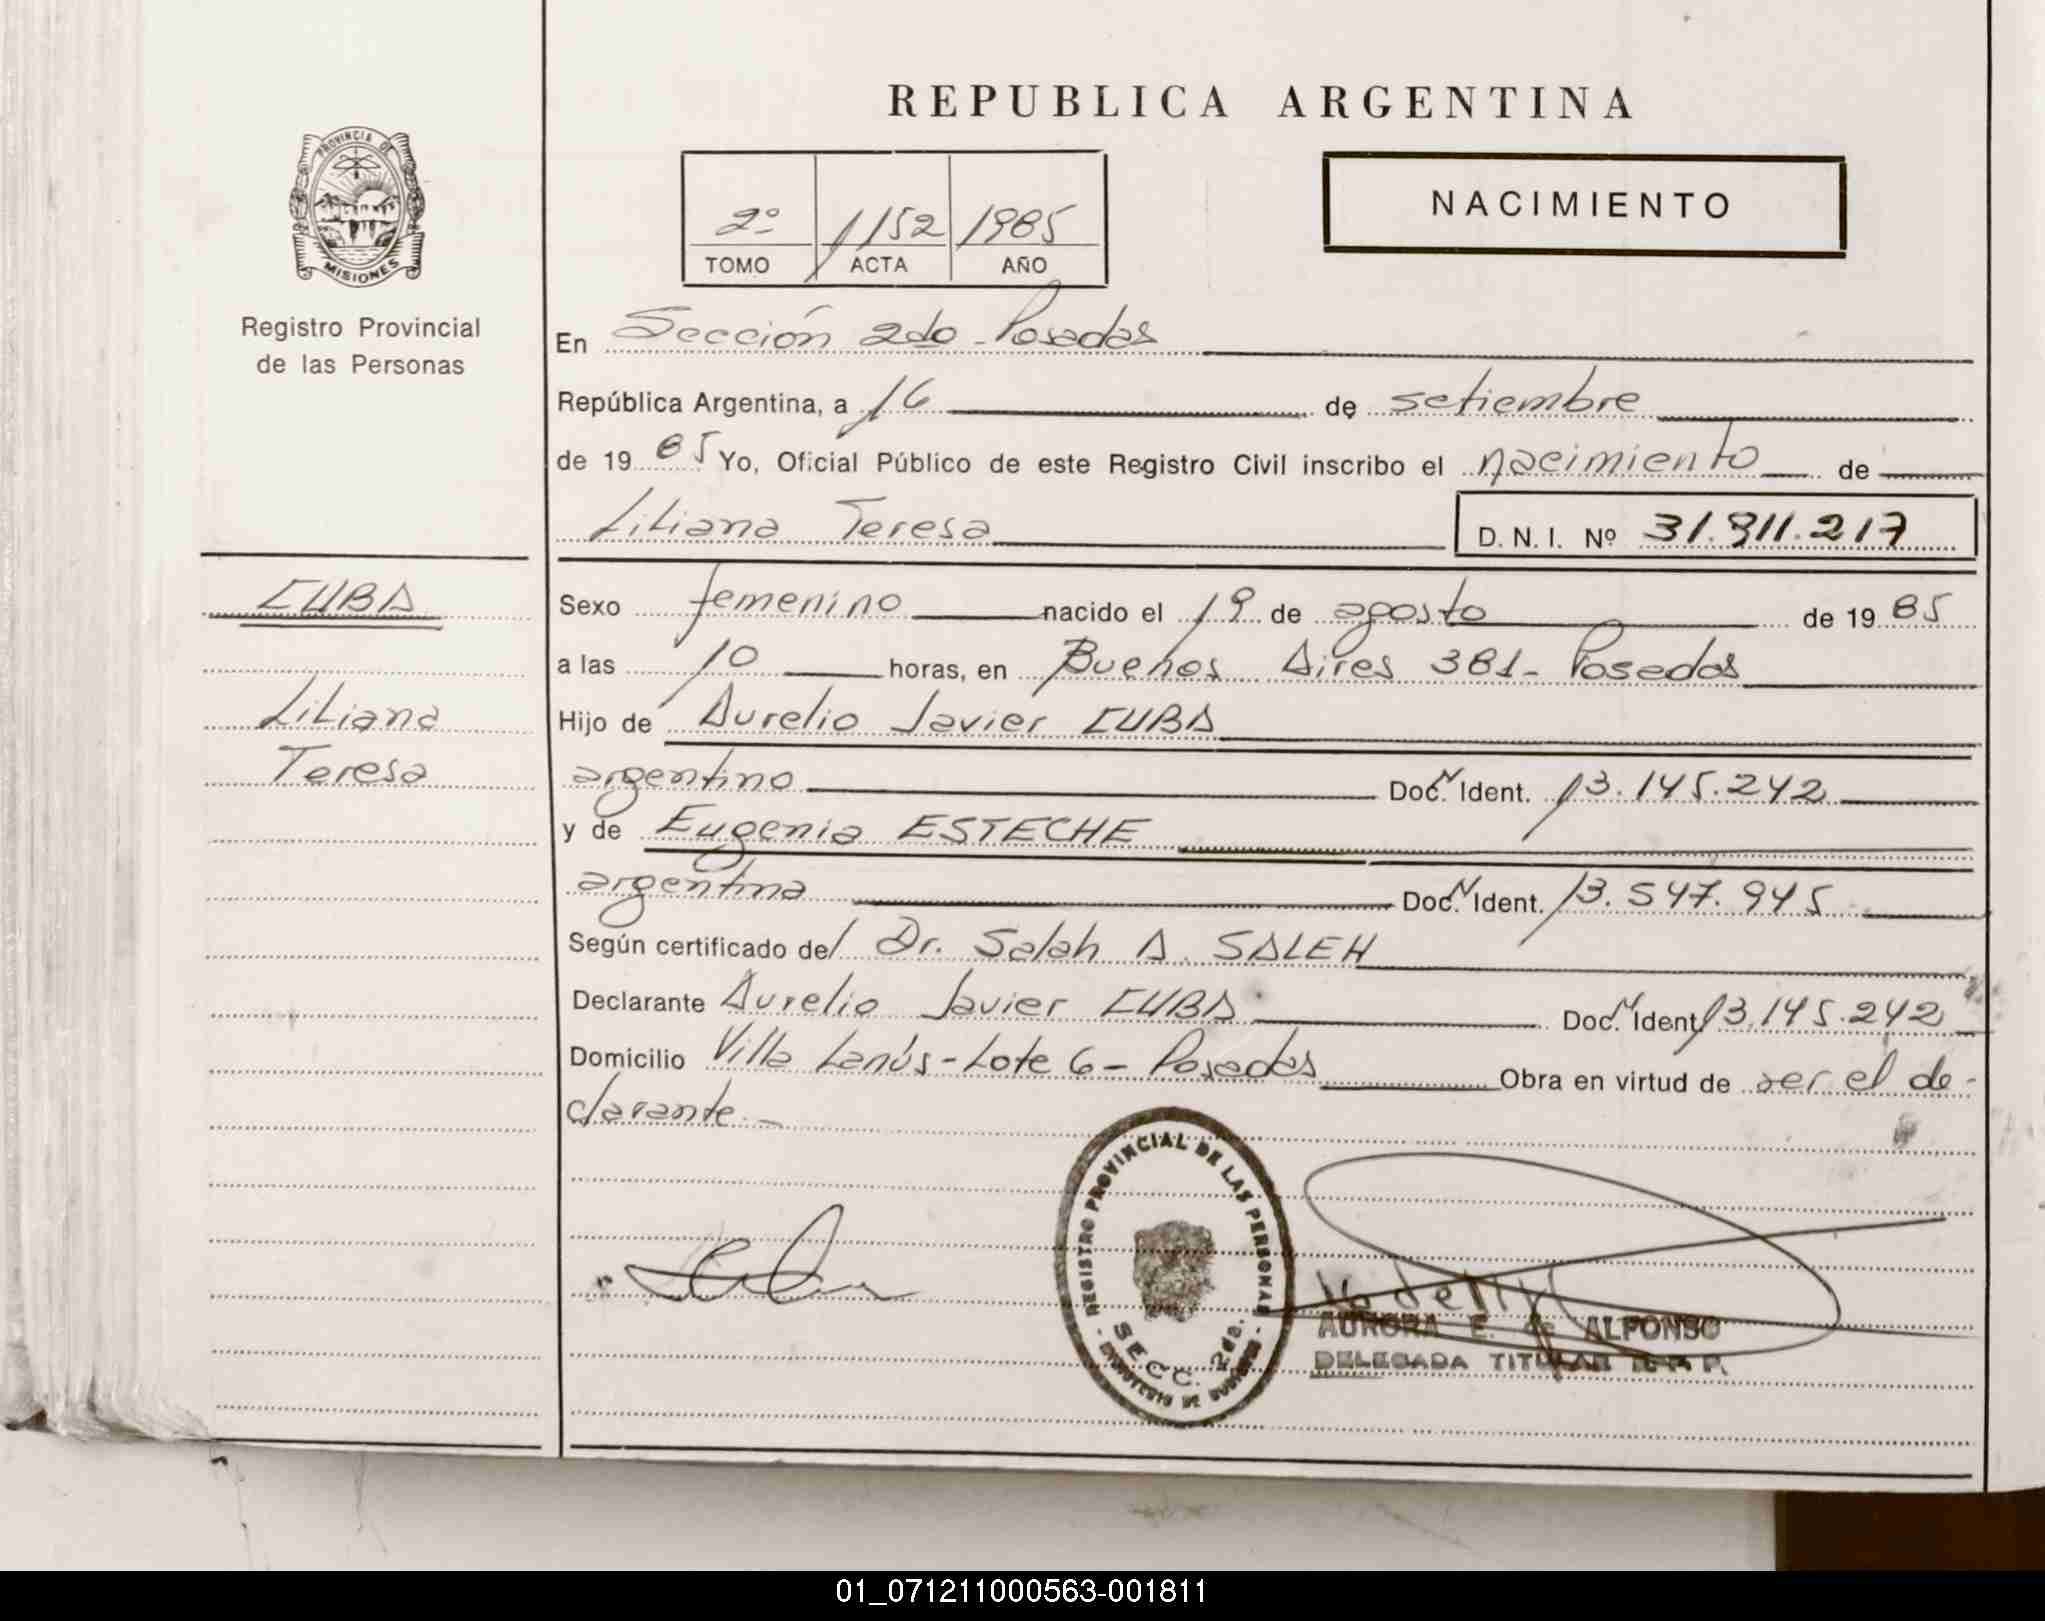 REPUBLICA ARGENTINA
PROVINCIA DE
MISIONES
Registro Provincial
de las Personas
2º 1152 1985
TOMO ACTA AÑO
NACIMIENTO
En Sección 2do - Posadas
República Argentina, a 16 de setiembre
de 19 85 Yo, Oficial Público de este Registro Civil inscribo el nacimiento de
Liliana Teresa D. N. I. Nº 31.811.217
CUBA
Liliana
Teresa
Sexo femenino nacido el 19 de agosto de 19 85
a las 10 horas, en Buenos Aires 381 - Posadas
Hijo de Aurelio Javier CUBA
argentino Doc. Ident. 13.145.242
y de Eugenia ESTECHE
argentina Doc. Ident. 13.547.945
Según certificado del Dr. Salah A. SALEH
Declarante Aurelio Javier CUBA Doc. Ident. 13.145.242
Domicilio Villa Lanús - Lote 6 - Posadas Obra en virtud de ser el de-
clarante. -
REGISTRO PROVINCIAL DE LAS PERSONAS
SECC. 2da.
AURORA E. de ALFONSO
DELEGADA TITULAR R. P. P.
01_071211000563-001811